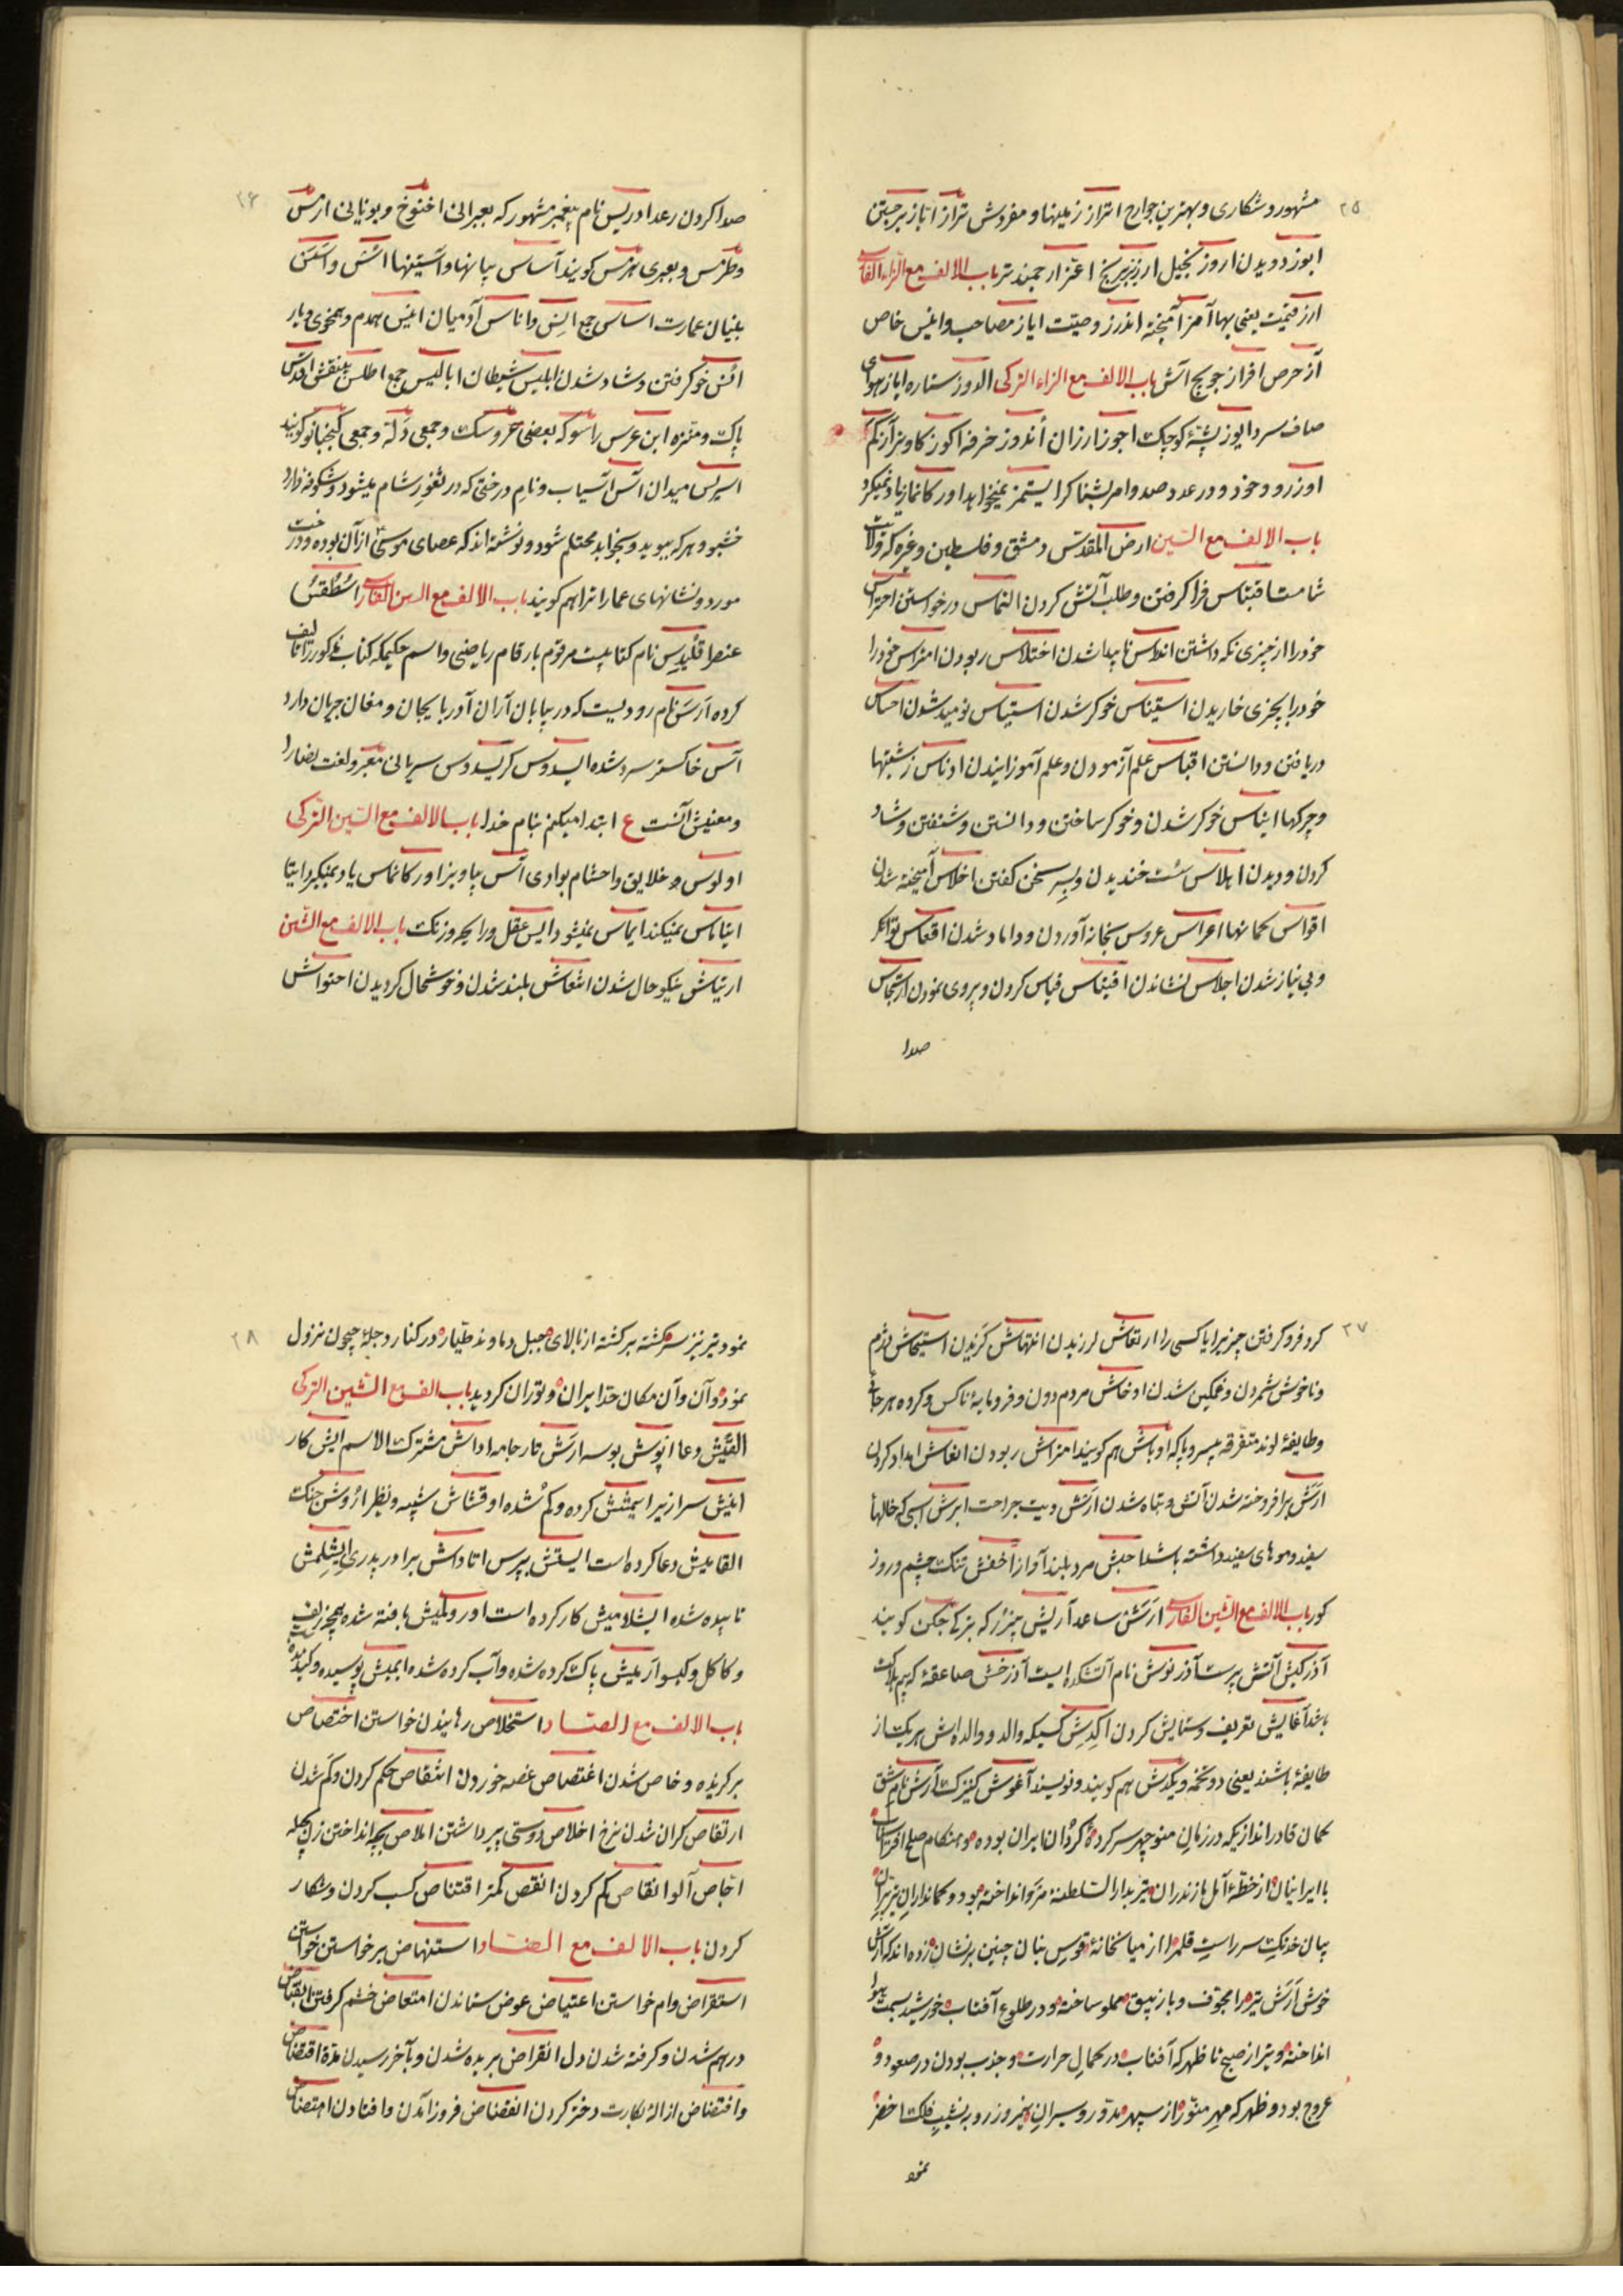 ۲۵
مشهور و شکاری و بهترین جوارح اعتزاز زمینها و مفروش تراز اناز برجستن
ابوز دویدن اروز کنجیل ارزیز برنج اعز ارجمندتر باب الالف مع الزاء الفارسی
ارز قیمت یعنی بها آمرز آمیخته اندرز وصیت ایاز مصاحب و انیس خاص
آز حرص افراز جویج آتش باب الالف مع الزاء الترکی الدوز ستاره ایاز هوای
صاف سرد ایوز پشتهٔ کوچک اجوز ارزان أندوز خرفه اکوز کاو بزار کم
اوزرود و خود و در عدد صد و امر بشنا کرا یستمز نمیخواهد اور کانماز یاد نمیکرد
باب الالف مع السین ارض المقدس دمشق و فلسطین و غیره که ولایت
شامست اقتباس فرا کرفتن و طلب آتش کردن التماس درخواستن احتراس
خود را از چیزی نکه داشتن اندلس ناپیدا شدن اختلاس ربودن امتراس خود را
خود را بچیزی خاریدن استیناس خوکر شدن استیاس نومید شدن احساس
دریافتن و دانستن اقباس علم آزمودن و علم آموزانیدن ادناس زشتیها
و چرکها ایناس خوکر شدن و خوکر ساختن و دانستن و شنفتن و شاد
کردن و دیدن اهلاس سست خندیدن و بسر سخن کفتن اخلاس آمیخته شدن
اقواس کمانها اعراس عروس بخانه آوردن و داماد شدن اقعاس توانکر
و بی نیاز شدن اجلاس نشاندن اقتیاس قیاس کردن و پیروی نمودن ارتجاس
صدا
۲۶
صدا کردن رعد ادریس نام پیغمبر مشهور که بعبرانی اخنوخ و بیونانی ارمس
و طرمس و بعربی هرمس کویند آساس بیانها و آستینها اسس و اسس
بنیان عمارت اساسی جمع انس و اناس آدمیان انیس همدم و همخوی و یار
انس خو کرفتن و شاد شدن ابلیس شیطان ابالیس جمع اطلس بینقش اقدس
پاک و منزه ابن عرس راسو که بعضی خروسک و جمعی دله و جمعی کیخبانو کویند
اسپرس میدان آس آسیاب و نام درختی که در ثغور شام میشود و شکوفه دارد
خشبو و هر که ببوید و بخوابد محتلم شود و نوشته اند که عصای موسی از آن بوده و درخت
مورد و نشانهای عمارا تراهم کویند باب الالف مع السین الفارسی اسطقس
عنصر اقلیدس نام کتابیست مرقوم بارقام ریاضی و اسم حکیمکه کتاب مذکور را تألیف
کرده ارس نام رودیست که در بیابان آران آذربایجان و مغان جریان دارد
آس خاکستر سرد شده ایسدوس کریسدوس سریانی معبر و لغت نصارا
و معنیش آنست ع ابتدا میکنم بنام خدا باب الالف مع السین الترکی
اولوس خلایق و احشام بوادی آس بیاویز اور کانماس یاد نمیکیرد ایتا
ایناناس نمیکند ایماس نمیشود ایس عقل و رایحه و زنک باب الالف مع الشین
ارتیاش نیکو حال شدن انتعاش بلند شدن و خوشحال کردیدن احتواش
۲۷
کرد فرو کرفتن چیز برا یا کسی را ارتعاش لرزیدن انتهاش کزیدن استیحاش دژم
و ناخوش شمردن و غمکین شدن اوخاش مردم دون و فرومایهٔ ناکس و کروه هر جائی
و طایفهٔ لوند متفرقه بیسر و پا که اوباش هم کویند امتراش ربودن انعاش امداد کردن
ارش برافروخته شدن آتش و تباه شدن ارش دیت جراحت ابرش اسبی که خالها
سفید و موهای سفید داشته باشد اجش مرد بلند آواز اخفش تنک چشم و روز
کور باب الالف مع الشین الفارسی ارش ساعد آریش چیز که بترکی چکن کویند
آذر کیش آتش پرست آذر نوش نام آتشکده ایست آذرخش صاعقهٔ که بیم هلاکت
باشد آغایش تعریف و ستایش کردن اکدش کسیکه والد و والده اش هر یک از
طایفهٔ باشند یعنی دو تخمه و یکدش هم کویند و نویسند آغوش کنیزک آرش نام عاشق
کمان قادر اندازیکه در زمان منوچهر سر کردهٔ کردان ایران بوده و هنکام صلح افراسیاب
با ایرانیان از خطهٔ آمل مازندران تیر بدار السلطنهٔ مرو انداخته بود و کمانداران تیز پران
بیان خدنک سر راست قلم را از میانخانهٔ قوس بنان چنین بر نشان زده اند که آرش
خوش آرش تیر را مجوف و بازیبق مملو ساخته و در طلوع آفتاب خورشید بسمت هوا
انداخته و تیر از صبح تا ظهر که آفتاب در کمال حرارت و جذب بودن در صعود و
عروج بود و ظهر که مهر منور از سپهر مدور و سیران نیمروز رو بنشیب فلک اخضر
نمود
۲۸
نمود تیر نیز سر کشته بر کشته از بالای جبل دماوند طیاره در کنار دجلهٔ جیحون نزول
نموده و آن و آن مکان حد ایران و توران کردید باب الف مع الشین الترکی
القیش دعا اپوش بوسه ارش تار جامه اداش مشترک الاسم ایش کار
انیش سرازیر ایتمش کرده و کم شده اوقشاش شبیه و نظر اروش جنک
القامیش دعا کرده است ایستش بپرس اتاداش برادر پدری ایشلمش
تابیده شده ایشلامیش کار کرده است اورولمیش بافته شده همچو زلف
و کاکل و کیسو آریمیش پاک کرده شده و آب کرده شده ایمیش پوسیده و کندیده
باب الالف مع الصاد استخلاص رهانیدن خواستن اختصاص
برکزیده و خاص شدن اغتصاص غصه خوردن انتقاص حکم کردن و کم شدن
ارتقاص کران شدن نرخ اخلاص دوستی بیریا داشتن املاص بچه انداختن زن حامله
اجاص آلو انقاص کم کردن انقص کمتر اقتناص کسب کردن و شکار
کردن باب الالف مع الضاد استنهاض برخواستن خواستن
استقراض وام خواستن اعتیاض عوض ستاندن امتعاض خشم کرفتن انقباض
درهم شدن و کرفته شدن دل انقراض بریده شدن و بآخر رسیدن مدة اقتضاض
وافتضاض ازالهٔ بکارت دختر کردن انقضاض فرو آمدن و افتادن امتضاض